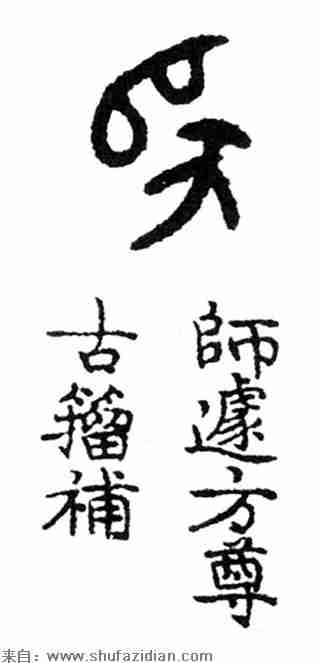 師遽方尊
古籀補
来自：www.shufazidian.com